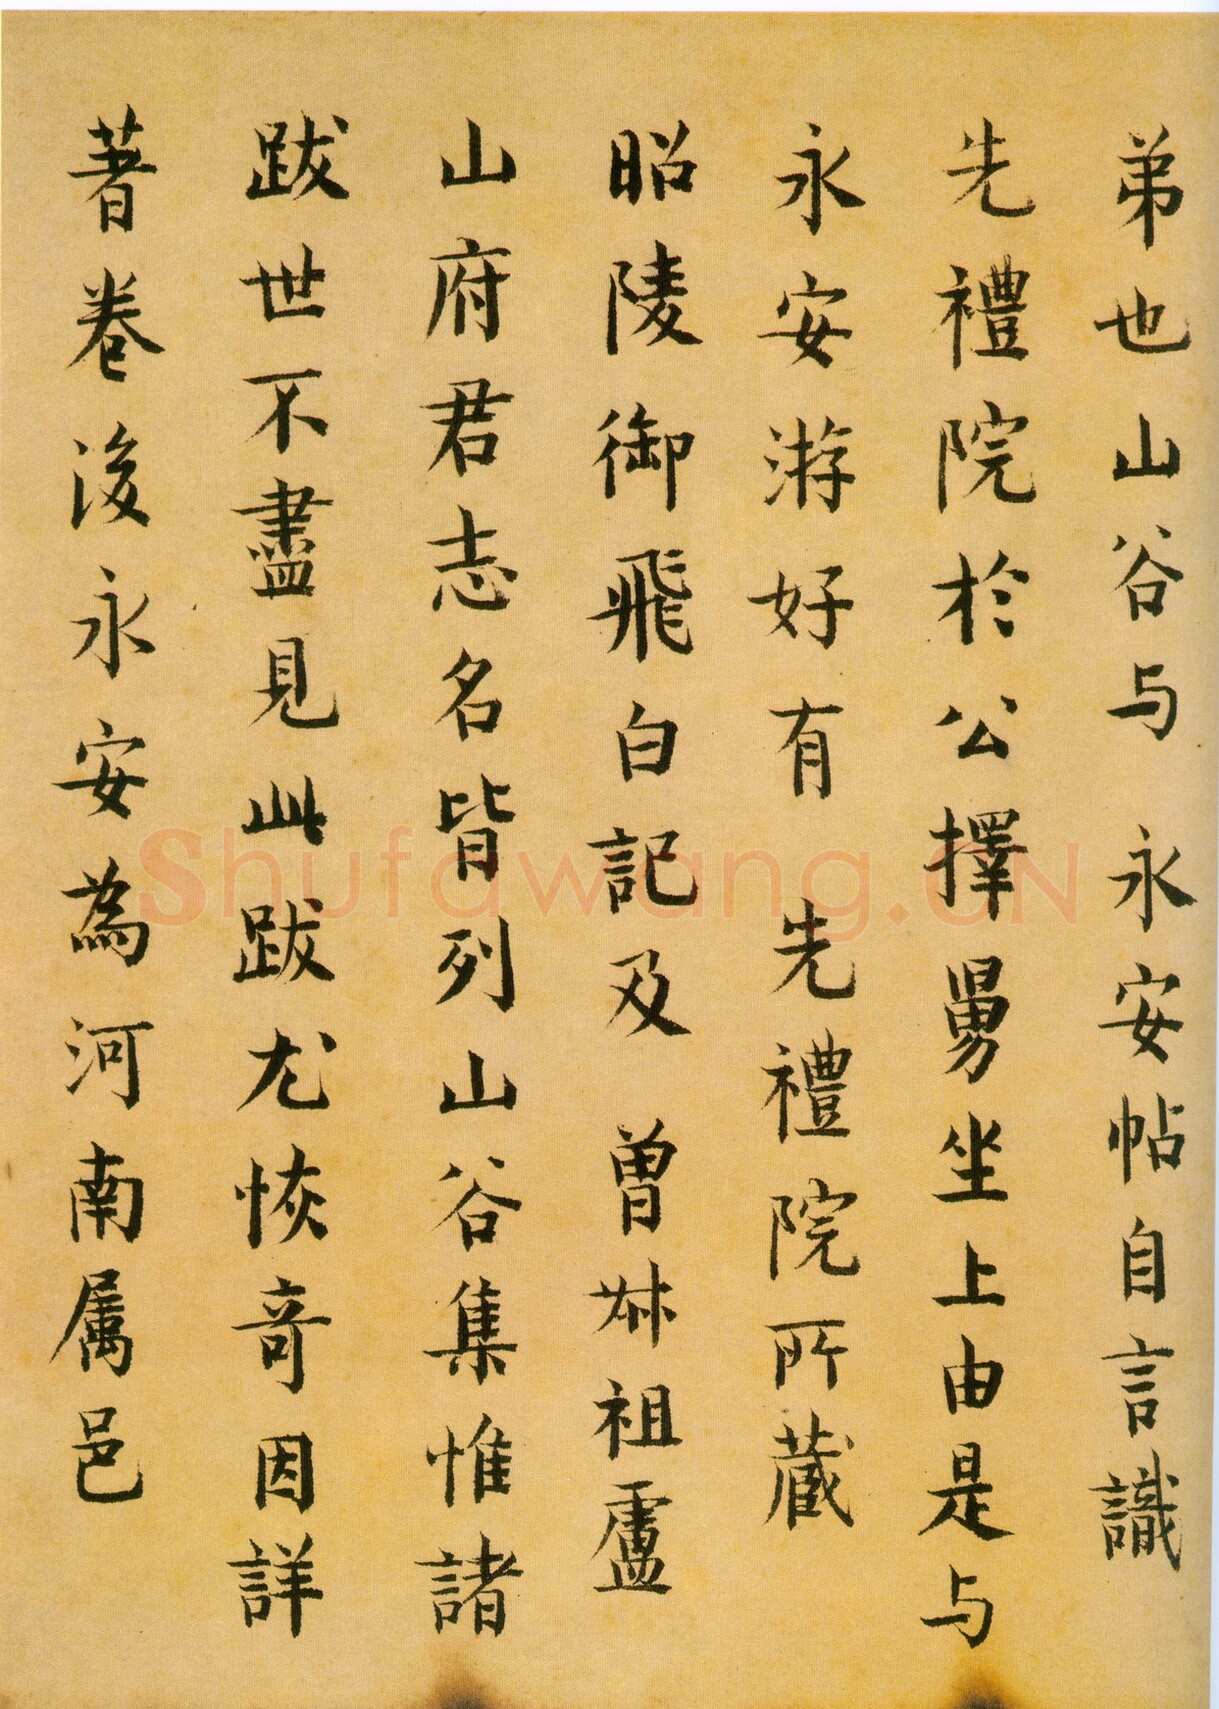 弟也山谷与永安帖自言識
先禮院於公擇舅坐上由是与
永安游好有先禮院所藏
昭陵御飛白記及曽姝祖盧
山府君志名皆列山谷集惟諸
跋世不盡見此跋尤恢竒因詳
著卷後永安為河南属邑
Shufawang.CN